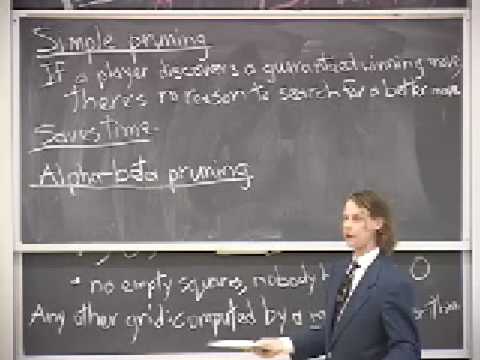 Simple pruning
If a player discovers a guaranteed winning move,
there's no reason to search for a better move
Saves time.
Alpha-beta pruning
• no empty squares, nobody 0
Any other grid: computed by a